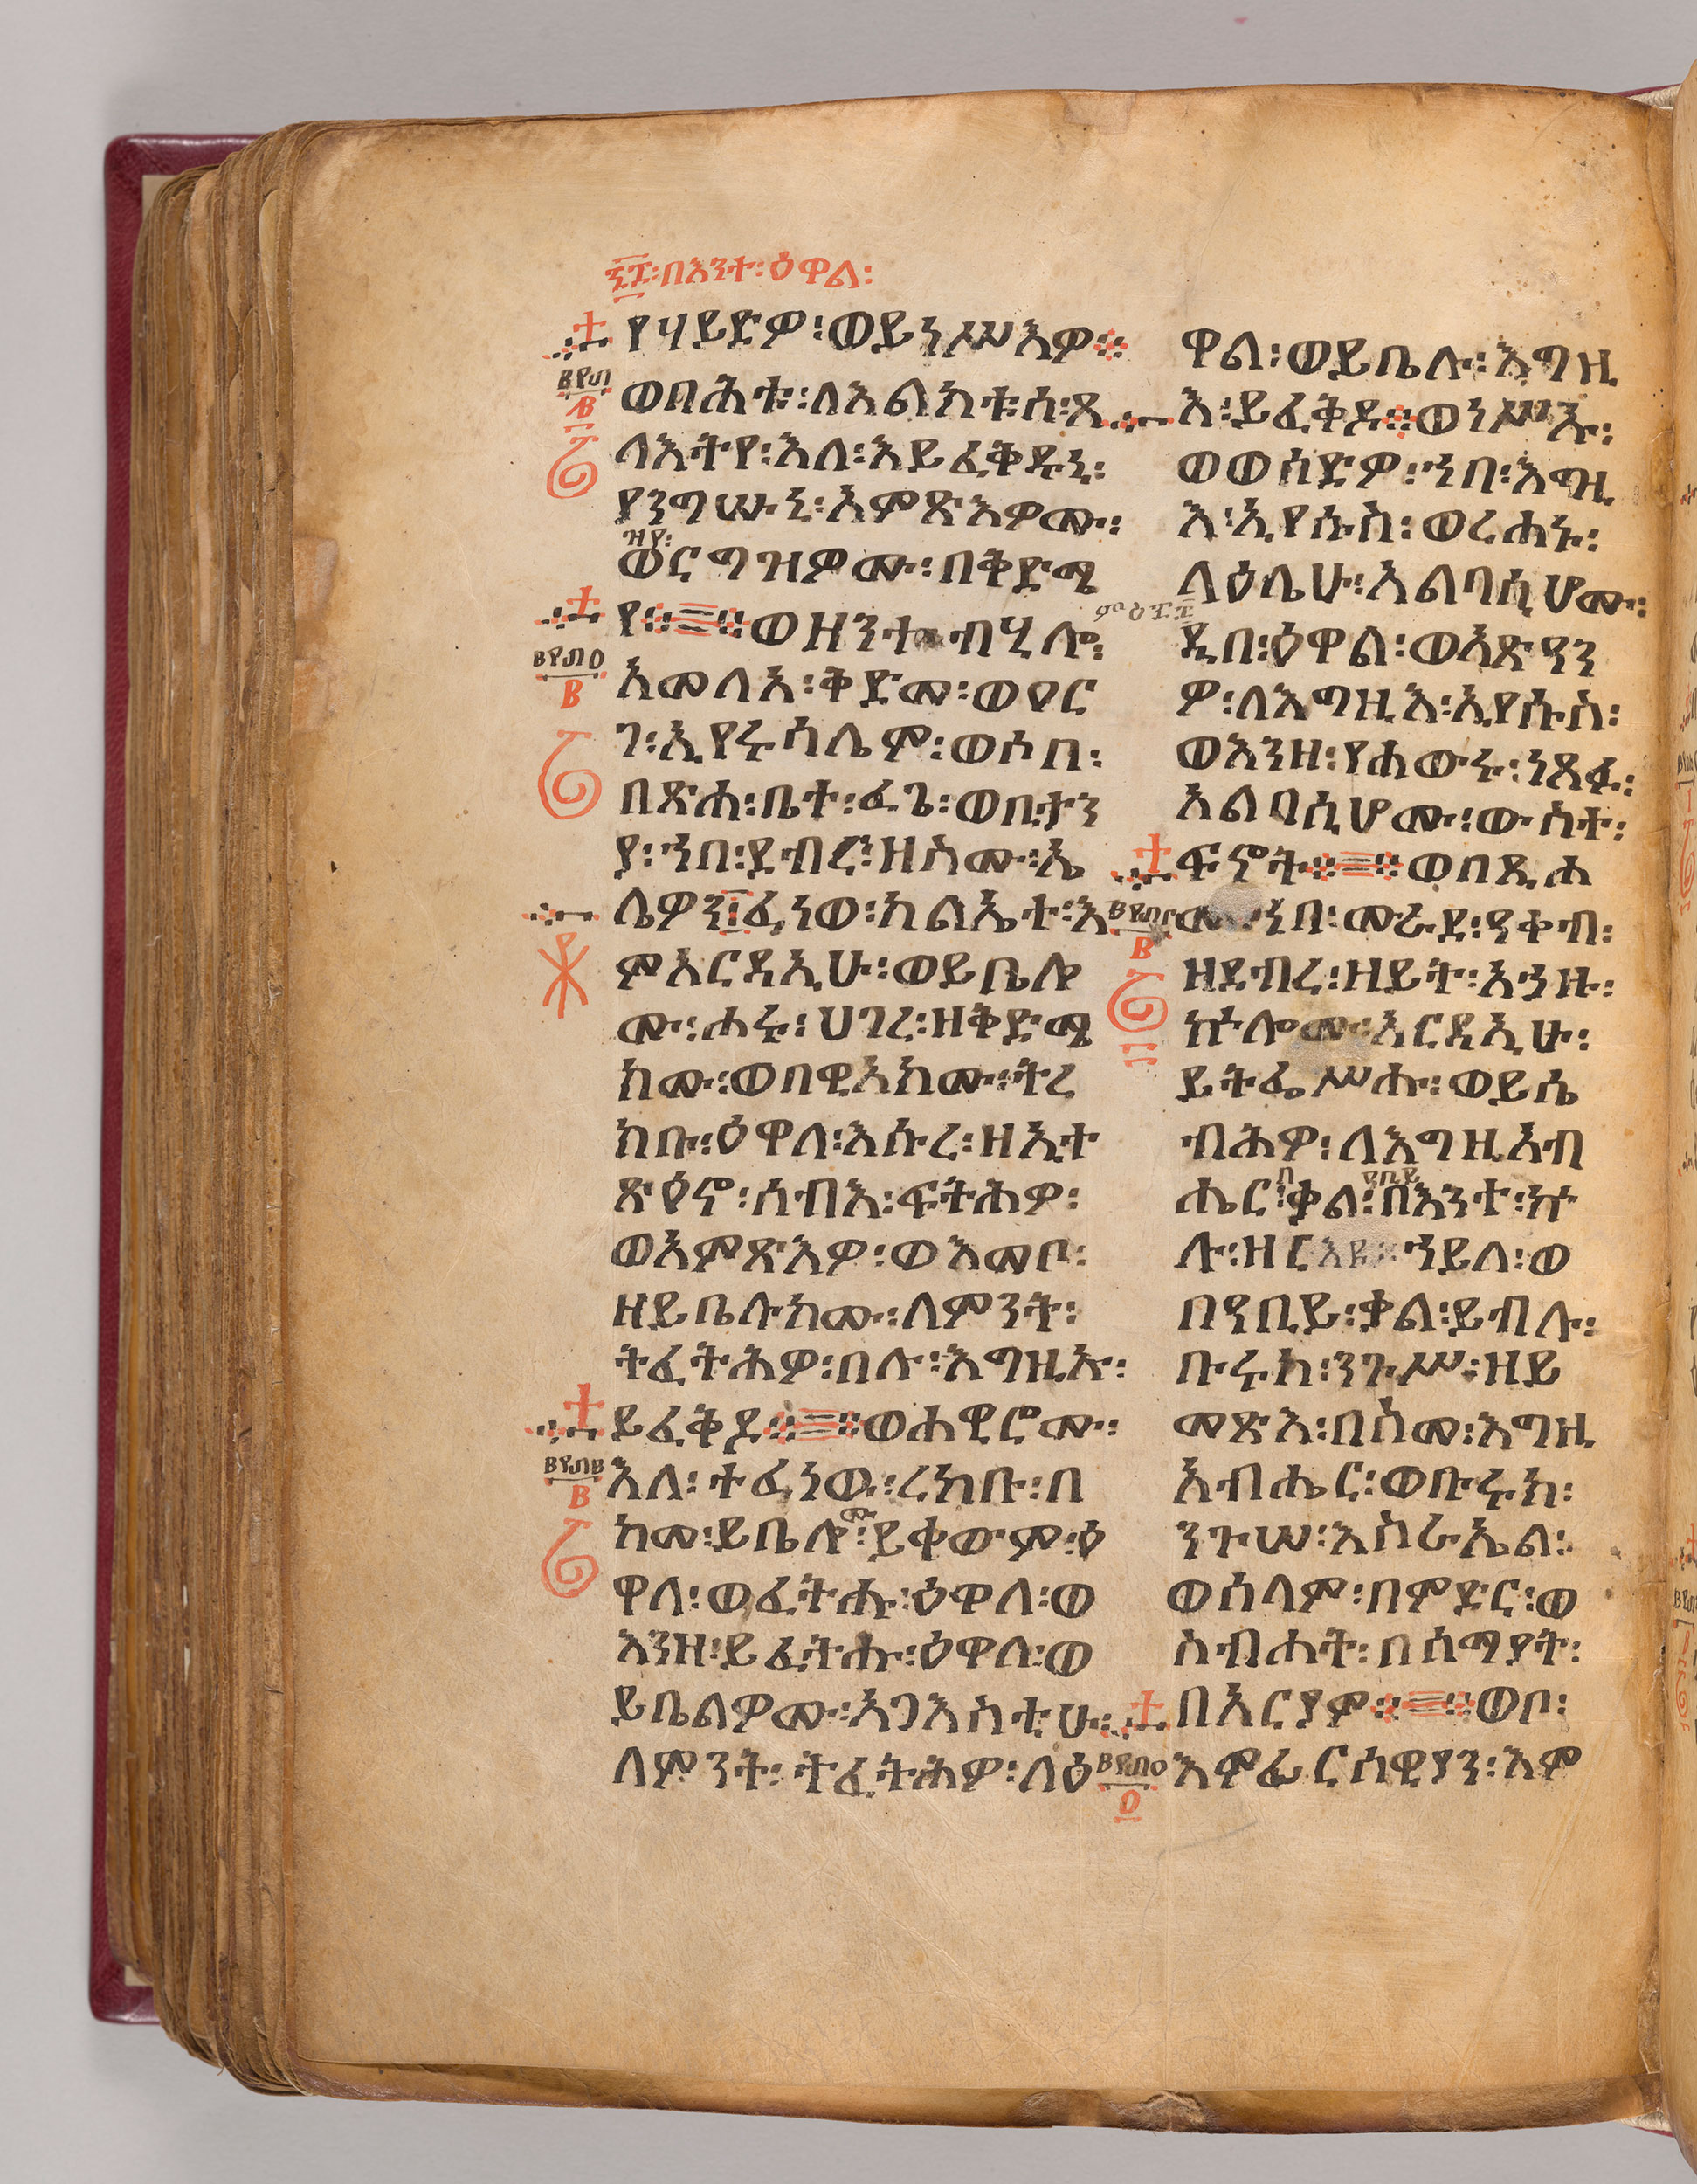 ፷፰፡በእንተ፡ዕዋል፡
የሃይድዎ፡ወይነሥእዎ፨
ወባሕቱ፡ለእልክቱ፡ሰ፡ጸ
ላእትየ፡እለ፡እይፈቅዱኒ፡
ያንግሡኒ፡አምጽእዎሙ፡
ዝየ፡
ወርግዝዎሙ፡በቅድሜ
የ፨ወዘንተ፡ብሂሎ፡
አመለአ፡ቅድመ፡ወዐር
ገ፡ኢየሩሳሌም፡ወሶበ፡
በጽሐ፡ቤተ፡ፈጌ፡ወቢታን
ያ፡ኀበ፡ደብረ፡ዘስሙ፡ኤ
ሌዎን፡ፈነወ፡ክልኤተ፡እ
ምአርዳኢሁ፡ወይቤሎ
ሙ፡ሐሩ፡ሀገረ፡ዘቅድሜ
ክሙ፡ወበዊአክሙ፡ትረ
ክቡ፡ዕዋለ፡እሱረ፡ዘኢተ
ጽዕኖ፡ሰብእ፡ፍትሕዎ፡
ወአምጽእዎ፡ወእመቦ፡
ዘይቤሉክሙ፡ለምንት፡
ትፈትሕዎ፡በሉ፡እግዚኡ፡
ይፈቅዶ፨ወሐዊሮሙ፡
እለ፡ተፈነዉ፡ረከቡ፡በ
ከመ፡ይቤሎሙ፡ይቀውም፡ዕ
ዋለ፡ወፈትሑ፡ዕዋለ፡ወ
እንዘ፡ይፈትሑ፡ዕዋለ፡ወ
ይቤልዎሙ፡አጋእስቲሁ፡
ለምንት፡ትፈትሕዎ፡ለዕ
ዋል፡ወይቤሉ፡እግዚ
እ፡ይፈቅዶ፨ወነሥኡ፡
ወወሰድዎ፡ኀበ፡እግዚ
እ፡ኢየሱስ፡ወረሐኑ፡
ላዕሌሁ፡አልባሲሆሙ፡
ዲበ፡ዕዋል፡ወአጽዓን
ዎ፡ለእግዚእ፡ኢየሱስ፡
ወእንዘ፡የሐውሩ፡ነጸፉ፡
አልባሲሆሙ፡ውስተ፡
ፍኖት፨ወበጺሐ
ሙ፡ኀበ፡ሙራደ፡ዓቀብ፡
ዘደብረ፡ዘይት፡አኀዙ፡
ኵሎሙ፡አርዳኢሁ፡
ይትፌሥሑ፡ወይሴ
ብሕዎ፡ለእግዚአብ
ሔር፡በቃል፡ዐቢይ፡በእንተ፡ኵ
ሉ፡ዘርእዩ፡ኀይለ፡ወ
በዓቢይ፡ቃል፡ይብሉ፡
ቡሩክ፡ንጉሥ፡ዘይ
መጽእ፡በስመ፡እግዚ
አብሔር፡ወቡሩክ፡
ንጉሠ፡እስራኤል፡
ወሰላም፡በምድር፡ወ
ስብሐት፡በሰማያት፡
በአርያም፨ወቦ፡
እምፈርሰዊያን፡እም